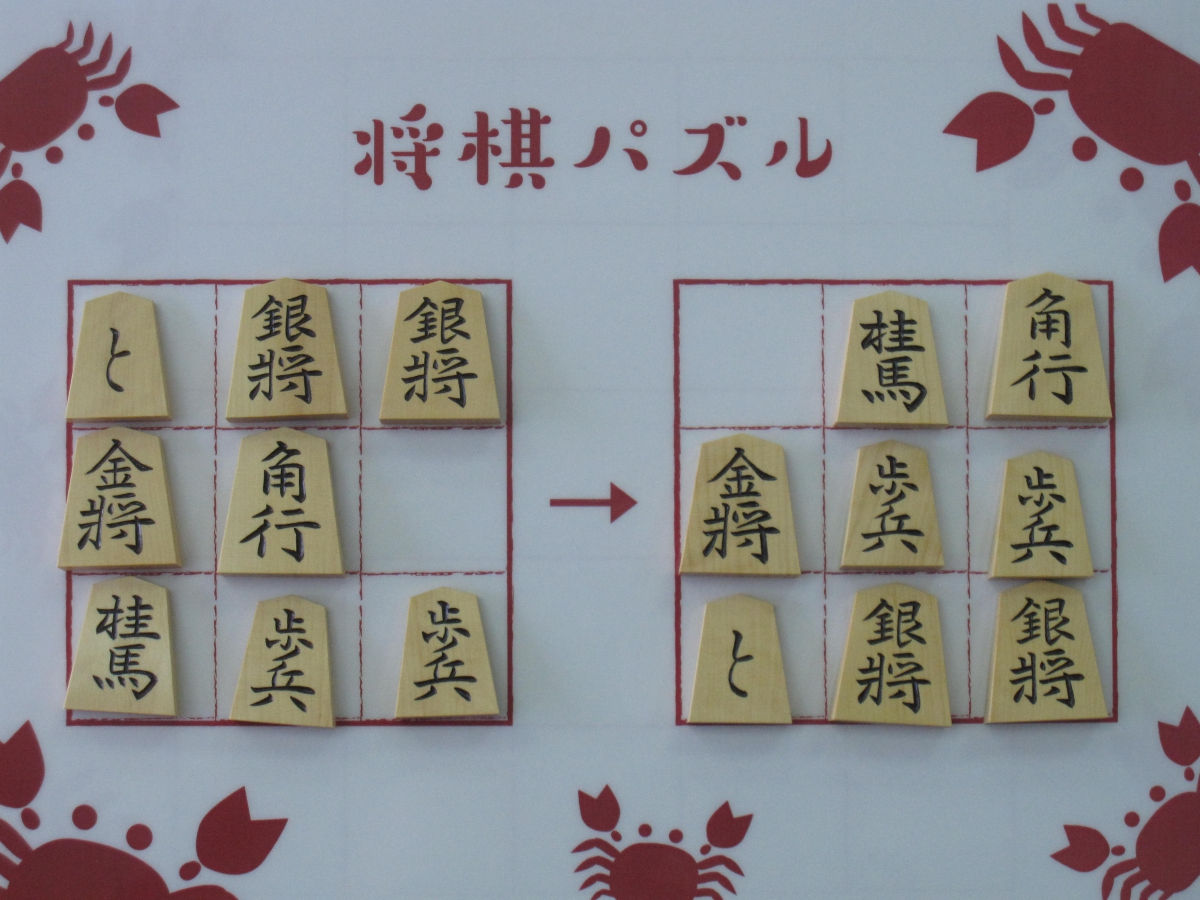 将棋パズル
と 銀将 銀将 桂馬 角行
金将 角行 金将 歩兵 歩兵
桂馬 歩兵 歩兵 と 銀将 銀将